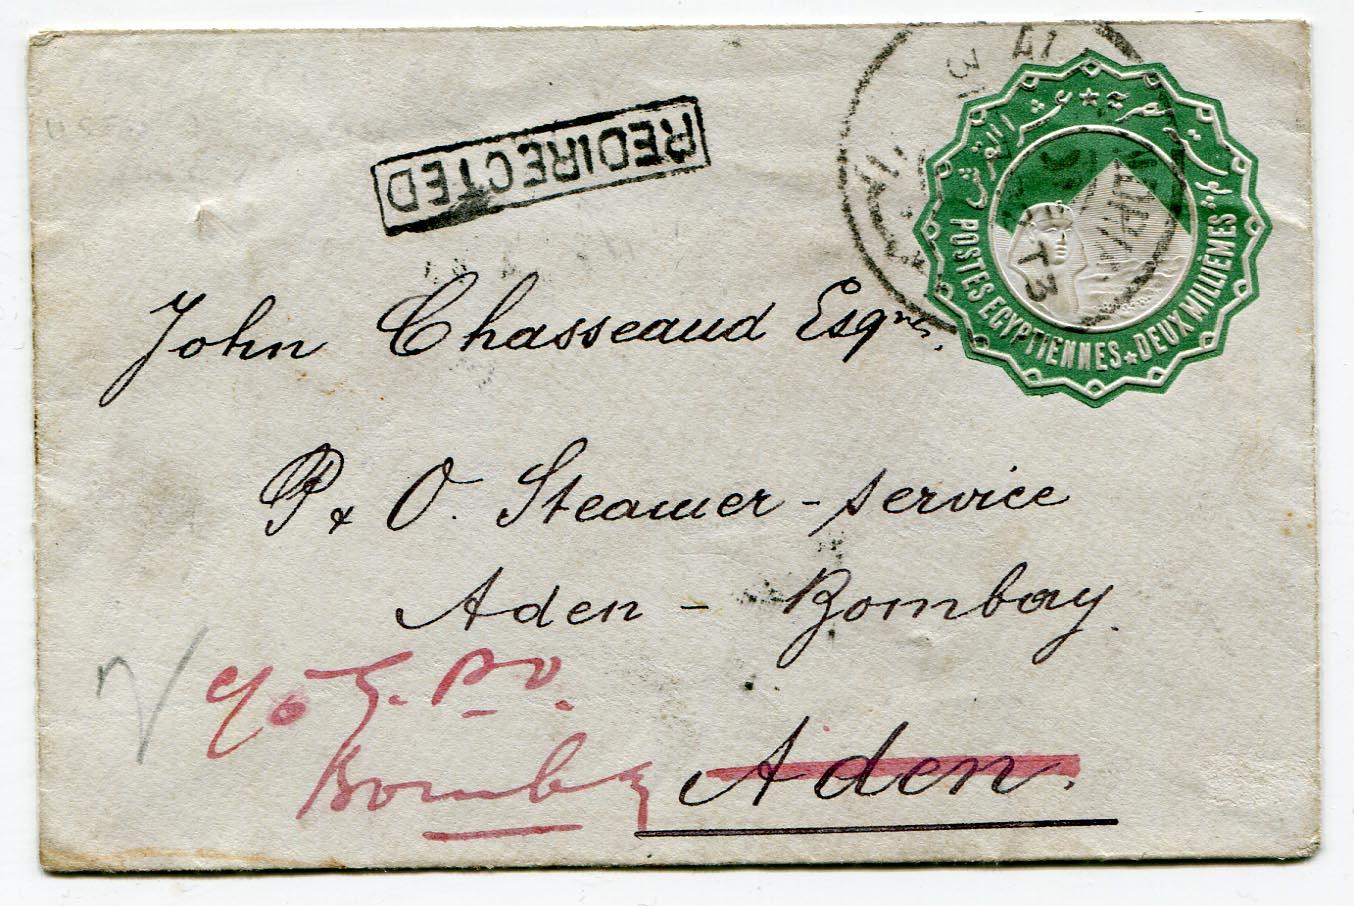 REDIRECTED
POSTES EGYPTIENNES ★ DEUX MILLIÈMES
John Chasseaud Esqre.
P & O. Steamer-service
Aden - Bombay.
c/o G. P.O.
Bombay
Aden.